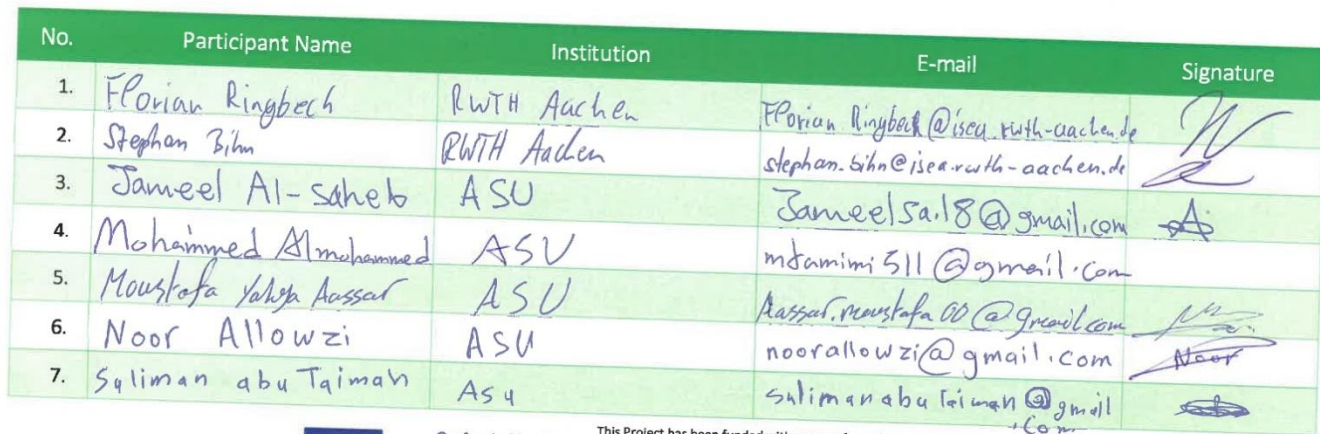 No. Participant Name Institution E-mail Signature
1. Florian Ringbeck RWTH Aachen Florian.Ringbeck@isea.rwth-aachen.de
2. Stephan Bihn RWTH Aachen stephan.bihn@isea.rwth-aachen.de
3. Jameel Al-saheb ASU Jameelsa.18@gmail.com
4. Mohammed Almohammed ASU mtamimi511@gmail.com
5. Moustafa Yahya Aassar ASU Aassar.moustafa00@gmail.com
6. Noor Allowzi ASU noorallowzi@gmail.com Noor
7. Suliman abu Taimah Asu sulimanabuTaimah@gmail
.com
This Project has been funded with